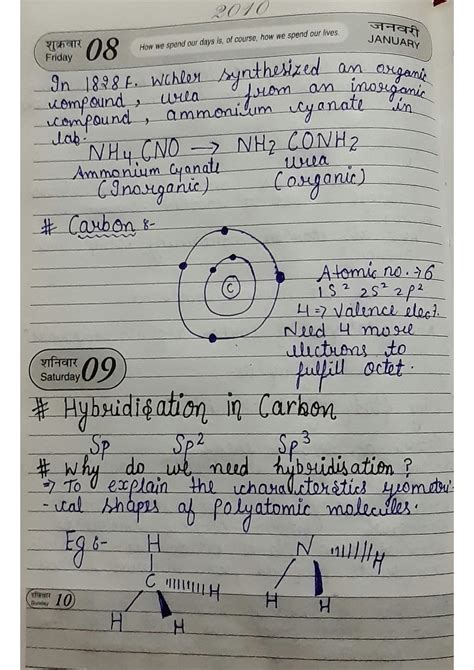 2010
शुक्रवार
Friday 08
How we spend our days is, of course, how we spend our lives.
जनवरी
JANUARY
In 1828 F. Wohler synthesized an organic
compound, urea from an inorganic
compound, ammonium cyanate in
lab.
NH4 CNO → NH2 CONH2
Ammonium Cyanate Urea
(Inorganic) (organic)
# Carbon :-
C
Atomic no. → 6
1S² 2S² 2p²
4 ⇒ Valence elec.
Need 4 more
electrons to
fulfill octet.
शनिवार
Saturday 09
# Hybridisation in Carbon
Sp Sp² Sp³
# Why do we need hybridisation ?
⇒ To explain the characteristics geometri-
-cal shapes of polyatomic molecules.
Eg :-
H
C
H
H
H
N
H
H
H
रविवार
Sunday 10